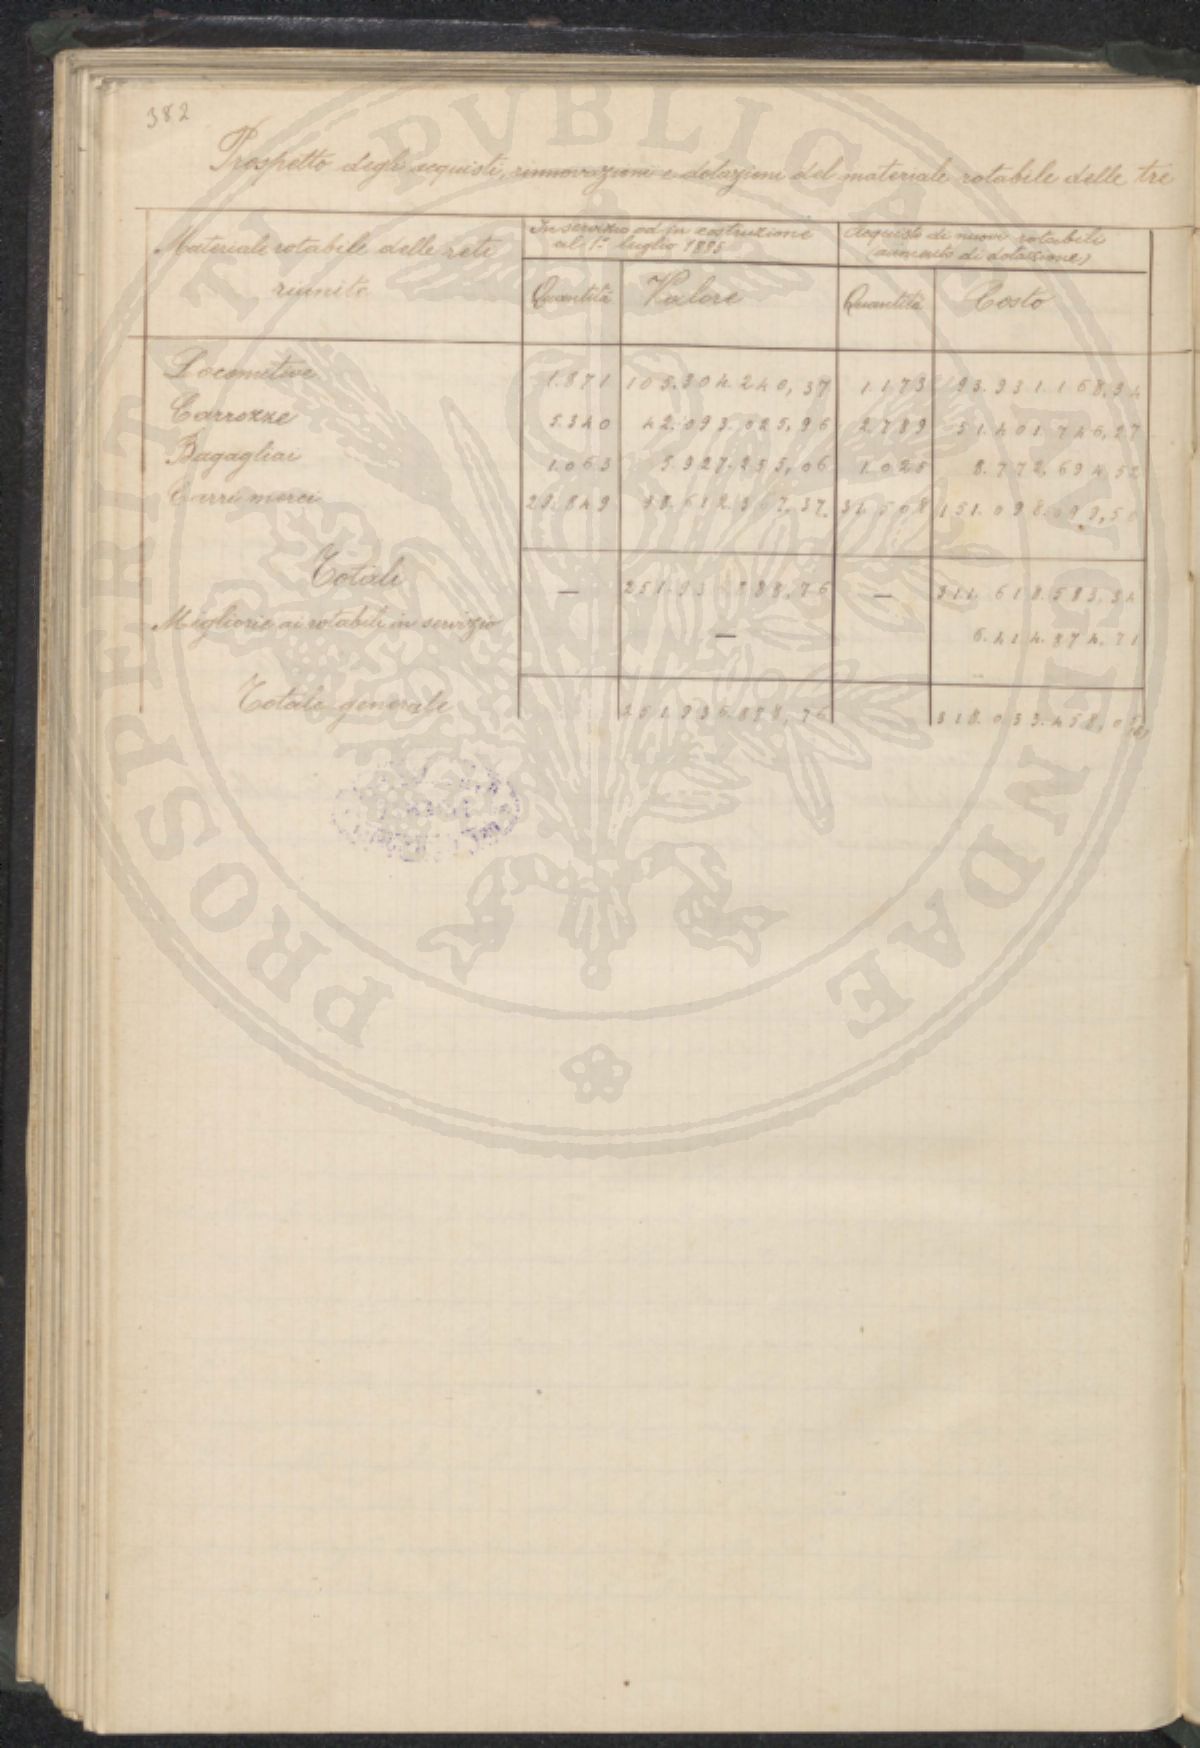 382
Prospetto degli acquisti, rinnovazioni e dotazioni del materiale rotabile delle tre
Materiale rotabile delle reti riunite
In servizio od in costruzione al 1° luglio 1885
Acquisto di nuovi rotabili (aumento di dotazione)
Quantità Valore Quantità Costo
Locomotive 1.871 105.304.240,37 1.173 93.931.168,94
Carrozze 5.340 42.093.025,96 2.789 51.401.746,27
Bagagliai 1.063 5.927.255,06 1.025 8.772.694,52
Carri merci
Totali — — 311.618.583,34
Migliorie ai rotabili in servizio — 6.414.874,71
Totale generale 318.033.458,05
PROSPERITATI PVBLICAE AVGENDAE